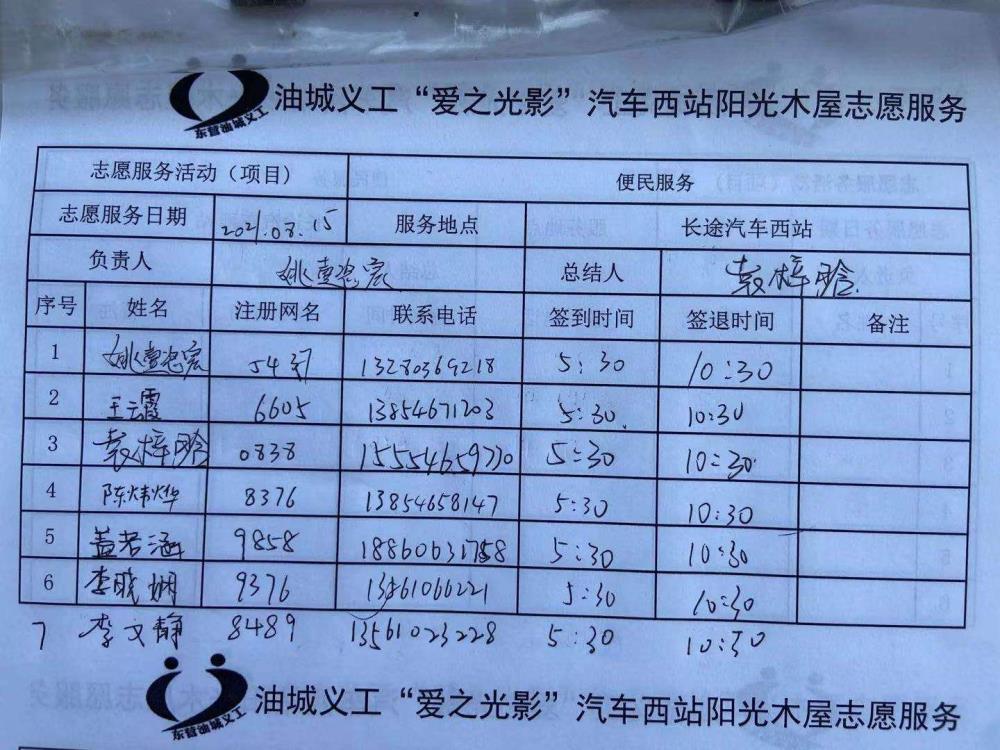 油城义工“爱之光影”汽车西站阳光木屋志愿服务
东营油城义工
志愿服务活动（项目） 便民服务
志愿服务日期 2021.08.15 服务地点 长途汽车西站
负责人 总结人 袁梓晗
序号 姓名 注册网名 联系电话 签到时间 签退时间 备注
1 13280369218 5:30 10:30
2 王云霞 6605 13854671203 5:30. 10:30
3 袁梓晗 0838 15554659770 5:30 10:30
4 陈炜烨 8376 13854658147 5:30 10:30
5 盖若涵 9858 18860631758 5:30 10:30
6 李晓娜 9376 13561066221 5:30 10:30
7 李文静 8489 13561023228 5:30 10:30
油城义工“爱之光影”汽车西站阳光木屋志愿服务
东营油城义工